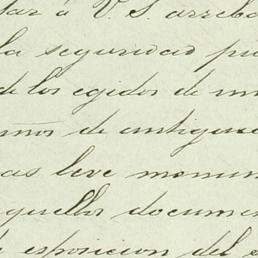 tar á V. S. arreba
la seguridad pú
de los egidos de mi
años de antigue
as leve monum
quellos documen
exposicion del